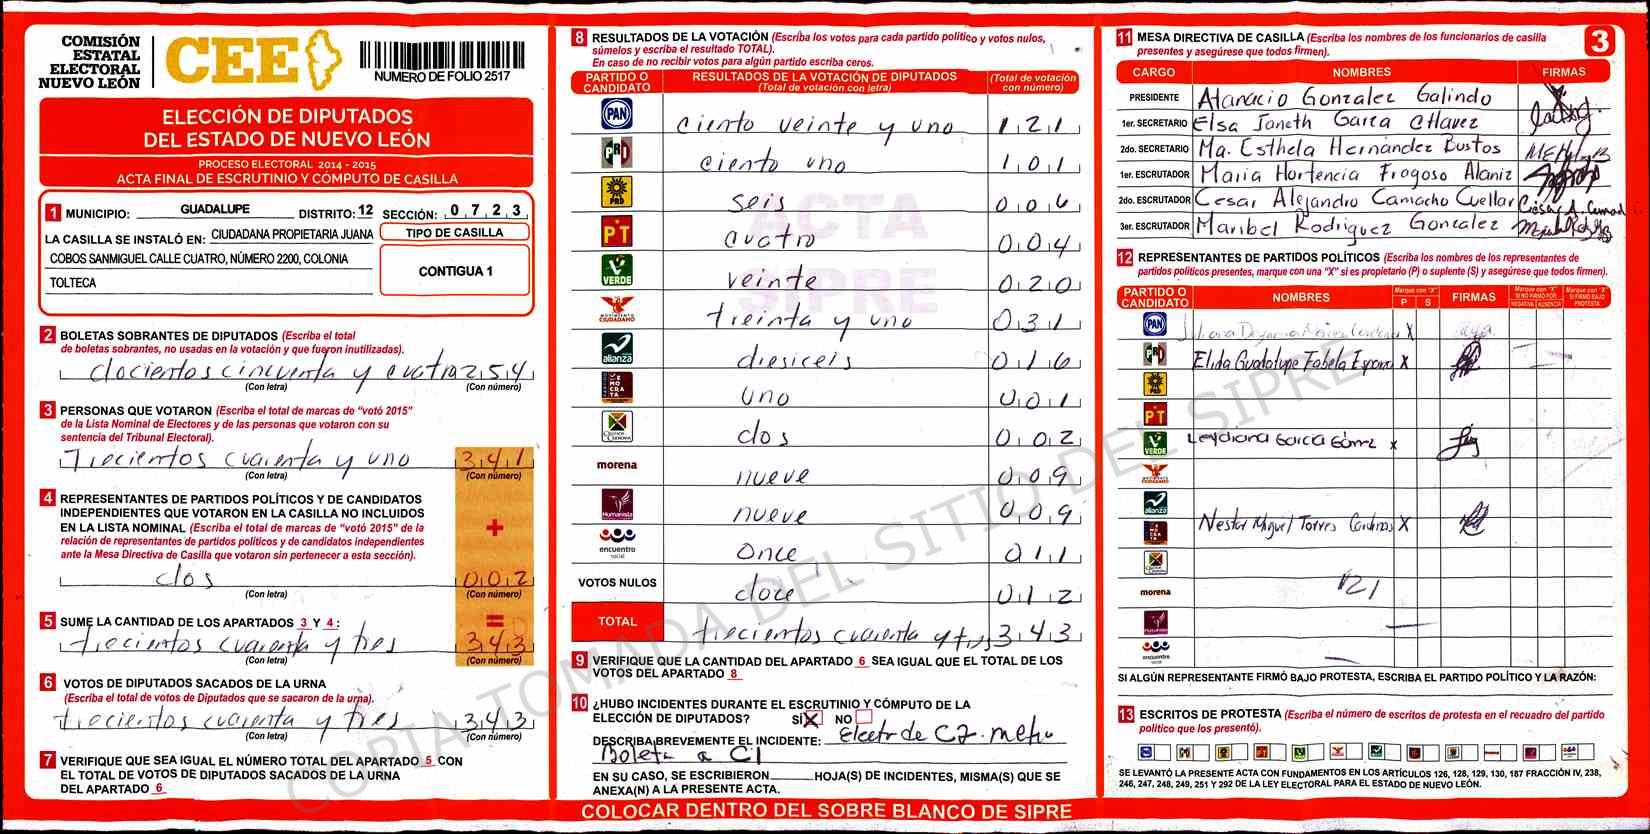 COMISIÓN
ESTATAL
ELECTORAL
NUEVO LEÓN
CEE
NUMERO DE FOLIO 2517
ELECCIÓN DE DIPUTADOS
DEL ESTADO DE NUEVO LEÓN
PROCESO ELECTORAL 2014 - 2015
ACTA FINAL DE ESCRUTINIO Y CÓMPUTO DE CASILLA
1 MUNICIPIO: GUADALUPE DISTRITO: 12 SECCIÓN: 0 7 2 3
LA CASILLA SE INSTALÓ EN: CIUDADANA PROPIETARIA JUANA
COBOS SANMIGUEL CALLE CUATRO, NÚMERO 2200, COLONIA
TOLTECA
TIPO DE CASILLA
CONTIGUA 1
2 BOLETAS SOBRANTES DE DIPUTADOS (Escriba el total
de boletas sobrantes, no usadas en la votación y que fueron inutilizadas).
docientos cincuenta y cuatro 2 5 4
(Con letra) (Con número)
3 PERSONAS QUE VOTARON (Escriba el total de marcas de “votó 2015”
de la Lista Nominal de Electores y de las personas que votaron con su
sentencia del Tribunal Electoral).
Trecientos cuarenta y uno 3 4 1
(Con letra) (Con número)
4 REPRESENTANTES DE PARTIDOS POLÍTICOS Y DE CANDIDATOS
INDEPENDIENTES QUE VOTARON EN LA CASILLA NO INCLUIDOS
EN LA LISTA NOMINAL (Escriba el total de marcas de “votó 2015” de la
relación de representantes de partidos políticos y de candidatos independientes
ante la Mesa Directiva de Casilla que votaron sin pertenecer a esta sección).
+
dos 0 0 2
(Con letra) (Con número)
5 SUME LA CANTIDAD DE LOS APARTADOS 3 Y 4: =
trecientos cuarenta y tres 3 4 3
(Con letra) (Con número)
6 VOTOS DE DIPUTADOS SACADOS DE LA URNA
(Escriba el total de votos de Diputados que se sacaron de la urna).
trecientos cuarenta y tres 3 4 3
(Con letra) (Con número)
7 VERIFIQUE QUE SEA IGUAL EL NÚMERO TOTAL DEL APARTADO 5 CON
EL TOTAL DE VOTOS DE DIPUTADOS SACADOS DE LA URNA
DEL APARTADO 6
8 RESULTADOS DE LA VOTACIÓN (Escriba los votos para cada partido político y votos nulos,
súmelos y escriba el resultado TOTAL).
En caso de no recibir votos para algún partido escriba ceros.
PARTIDO O CANDIDATO RESULTADOS DE LA VOTACIÓN DE DIPUTADOS (Total de votación con letra) (Total de votación con número)
PAN ciento veinte y uno 1 2 1
PRI ciento uno 1 0 1
PRD seis 0 0 6
PT cuatro 0 0 4
VERDE veinte 0 2 0
MOVIMIENTO CIUDADANO treinta y uno 0 3 1
alianza diesiceis 0 1 6
DEMOCRATA uno 0 0 1
CRUZADA CIUDADANA dos 0 0 2
morena nueve 0 0 9
Humanista nueve 0 0 9
encuentro social once 0 1 1
VOTOS NULOS doce 0 1 2
TOTAL trecientos cuarenta y tres 3 4 3
ACTA
SIPRE
9 VERIFIQUE QUE LA CANTIDAD DEL APARTADO 6 SEA IGUAL QUE EL TOTAL DE LOS
VOTOS DEL APARTADO 8
10 ¿HUBO INCIDENTES DURANTE EL ESCRUTINIO Y CÓMPUTO DE LA
ELECCIÓN DE DIPUTADOS? SÍ X NO
DESCRIBA BREVEMENTE EL INCIDENTE: Elector de C2 metio
Boleta a C1
EN SU CASO, SE ESCRIBIERON HOJA(S) DE INCIDENTES, MISMA(S) QUE SE
ANEXA(N) A LA PRESENTE ACTA.
COLOCAR DENTRO DEL SOBRE BLANCO DE SIPRE
11 MESA DIRECTIVA DE CASILLA (Escriba los nombres de los funcionarios de casilla
presentes y asegúrese que todos firmen).
3
CARGO NOMBRES FIRMAS
PRESIDENTE Atanacio Gonzalez Galindo
1er. SECRETARIO Elsa Janeth Garza Chavez
2do. SECRETARIO Ma. Esthela Hernandez Bustos
1er. ESCRUTADOR Maria Hortencia Fragoso Alaniz
2do. ESCRUTADOR Cesar Alejandro Camacho Cuellar
3er. ESCRUTADOR Maribel Rodriguez Gonzalez
12 REPRESENTANTES DE PARTIDOS POLÍTICOS (Escriba los nombres de los representantes de
partidos políticos presentes, marque con una “X” si es propietario (P) o suplente (S) y asegúrese que todos firmen).
PARTIDO O CANDIDATO NOMBRES Marque con "X" P S FIRMAS Marque con "X" SI NO FIRMÓ POR NEGATIVA AUSENCIA Marque con "X" SI FIRMÓ BAJO PROTESTA
PAN X
PRI Elida Guadalupe Fabela X
PRD
PT
VERDE Leydiana Garcia Gómez X
MOVIMIENTO CIUDADANO
alianza
DEMOCRATA Nestor Miguel Torres Cardenas X
morena 121
Humanista
encuentro social
SI ALGÚN REPRESENTANTE FIRMÓ BAJO PROTESTA, ESCRIBA EL PARTIDO POLÍTICO Y LA RAZÓN:
13 ESCRITOS DE PROTESTA (Escriba el número de escritos de protesta en el recuadro del partido
político que los presentó).
SE LEVANTÓ LA PRESENTE ACTA CON FUNDAMENTOS EN LOS ARTÍCULOS 126, 128, 129, 130, 187 FRACCIÓN IV, 238,
246, 247, 248, 249, 251 Y 292 DE LA LEY ELECTORAL PARA EL ESTADO DE NUEVO LEÓN.
COPIA TOMADA DEL SITIO DEL SIPRE